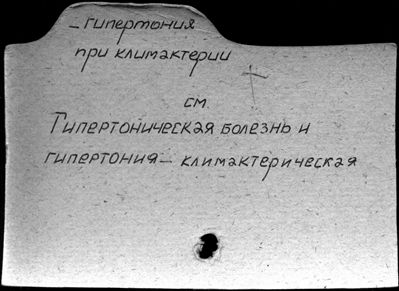 – гипертония
при климактерии
см.
Гипертоническая болезнь и
гипертония – климактерическая